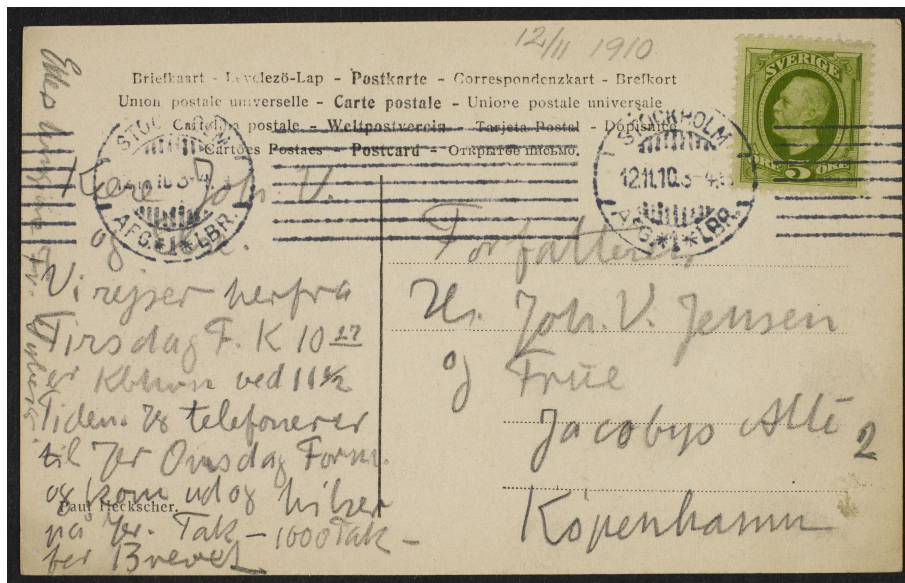 12/11 1910
Briefkaart - Levelező-Lap - Postkarte - Correspondenzkart - Brefkort
Union postale universelle - Carte postale - Unione postale universale
Cartolina postale - Weltpostverein - Tarjeta Postal - Dopisnice
Cartões Postaes - Postcard - Открытое письмо.
SVERIGE
5 ÖRE
STOCKHOLM
12.11.10.3-4
AFG. *1* LBR.
STOCKHOLM
12.11.10.3-4
AFG. *1* LBR.
Kære Joh. V.
og
Vi rejser herfra
Tirsdag F. K 10 27
Kbhvn ved 11 1/2
Tiden. Jeg telefonerer
til Jer Onsdag Form.
og kom ud og hilser
på Jer. Tak - 1000 Tak -
for Brevet
Paul Heckscher.
Forfatteren
Hr. Joh. V. Jensen
og Frue
Jacobys Allé 2
Köpenhamn